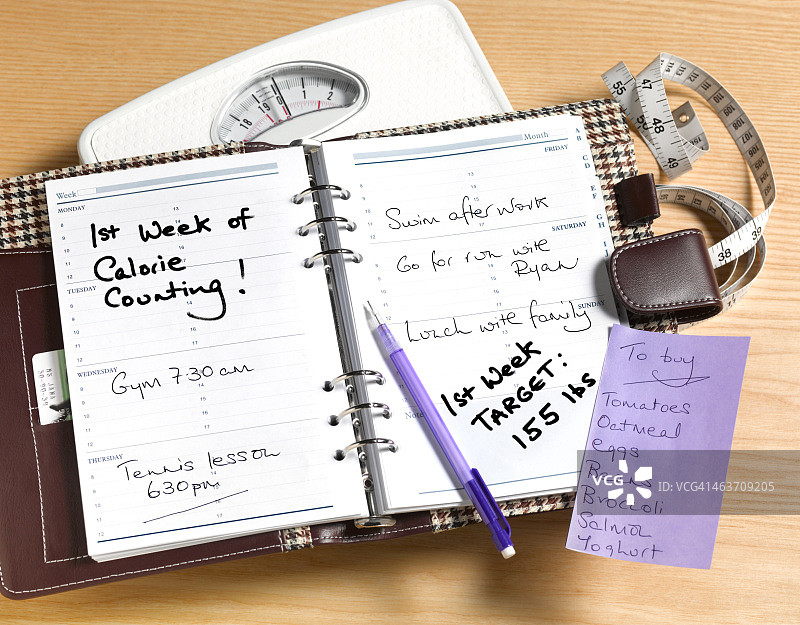 Week
MONDAY
1st Week of
Calorie
Counting!
TUESDAY
WEDNESDAY
Gym 7.30 am
THURSDAY
Tennis lesson
630pm
Month
FRIDAY
Swim after work
SATURDAY
Go for run with
Ryan
SUNDAY
Lunch with family
Notes
1st Week
TARGET:
155 lbs
A
B
C
D
E
F
G
H
To buy
Tomatoes
Oatmeal
eggs
Broccoli
Salmon
Yoghurt
18 19 0 1 2
55 47
48
49
109
39
38
VCG
VCG
ID: VCG41463709205